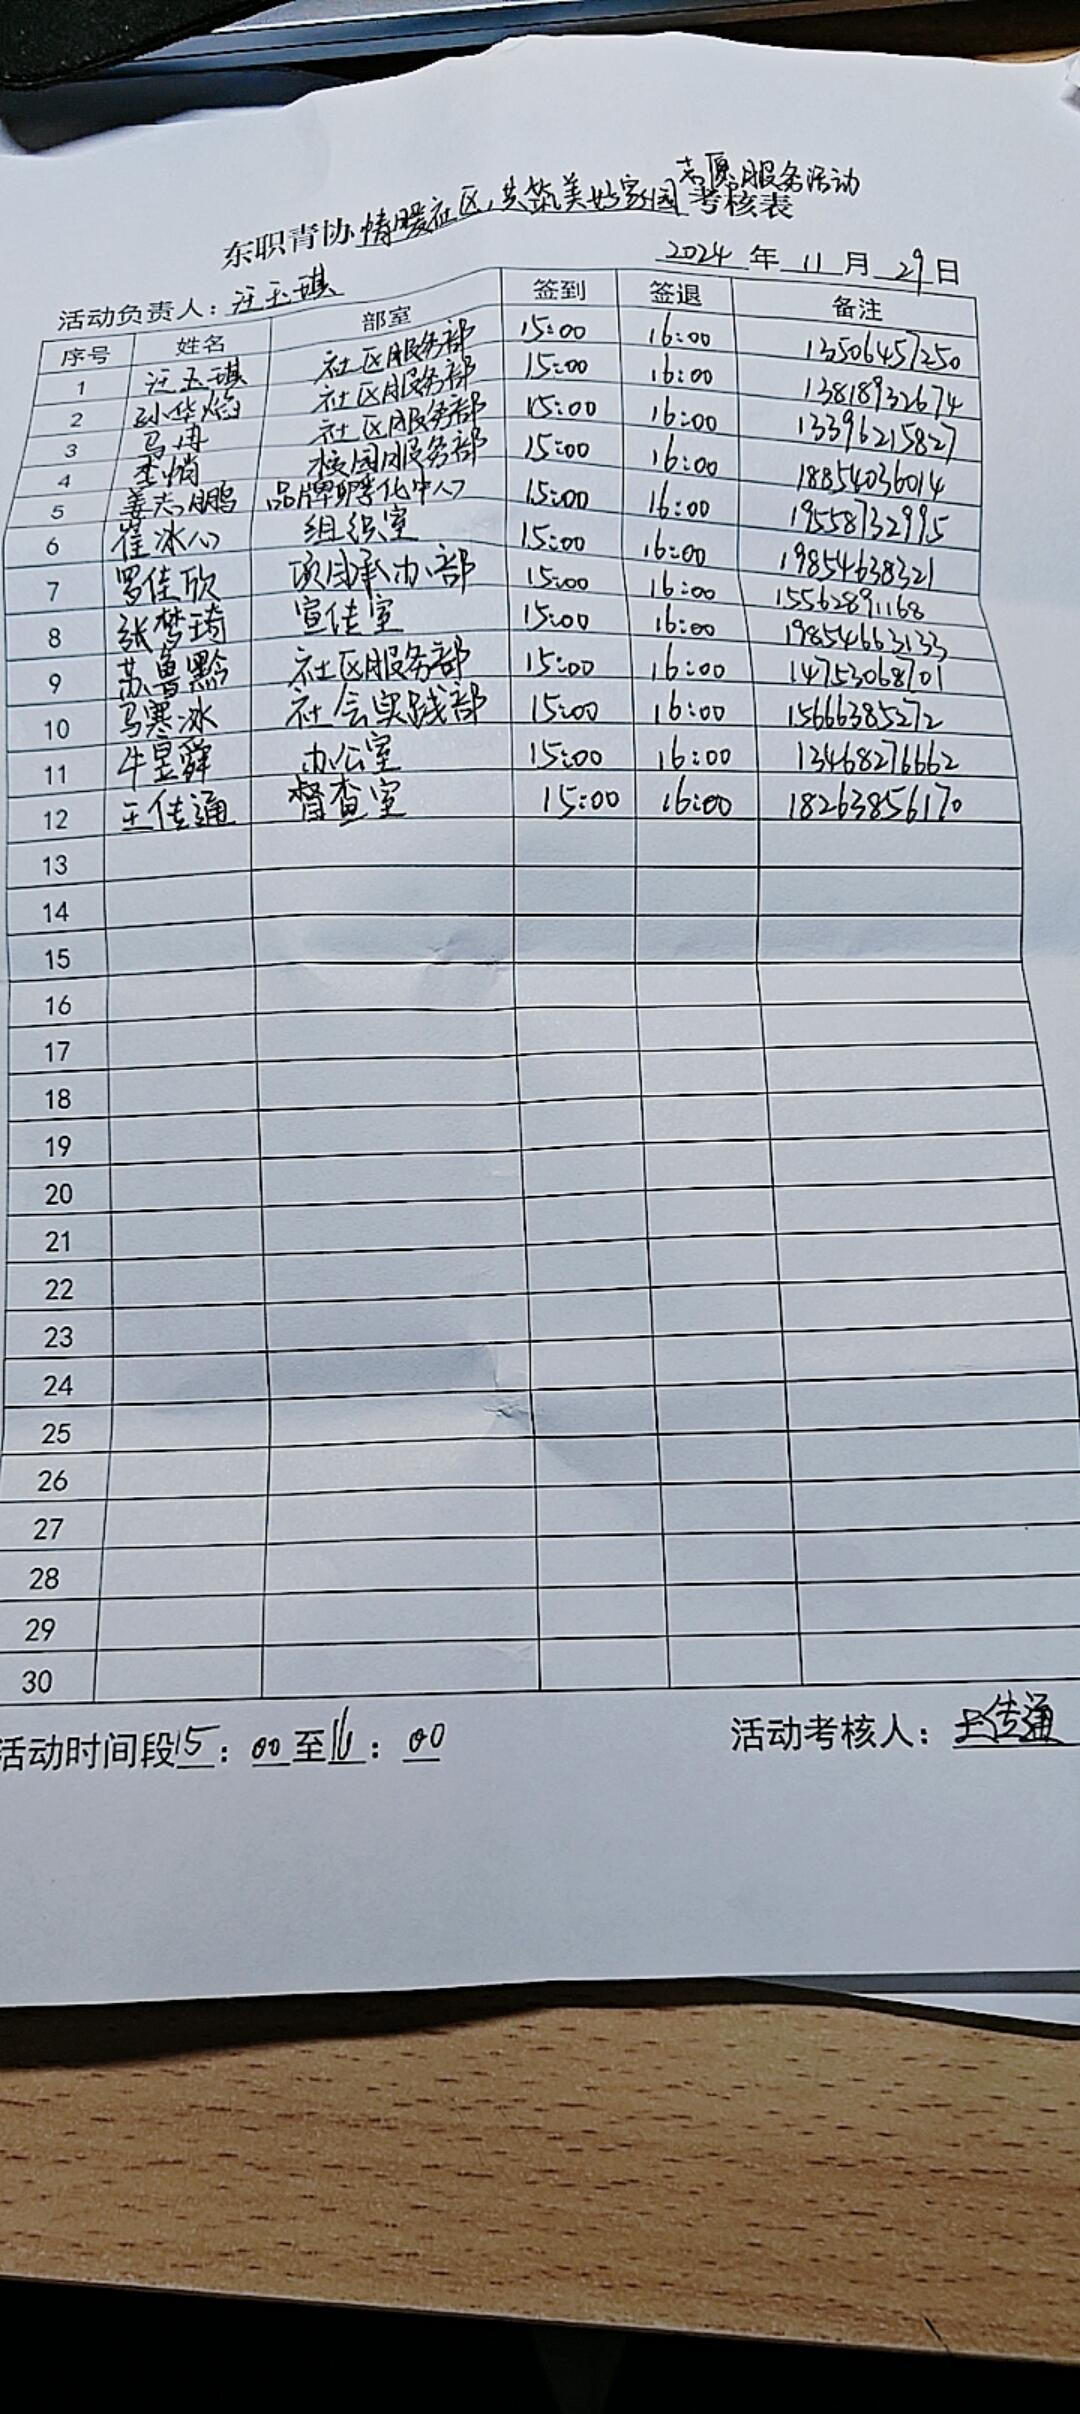 志愿服务活动
东职青协情暖社区,共筑美好家园考核表
2024年11月29日
活动负责人:汪玉琪
序号 姓名 部室 签到 签退 备注
1 汪玉琪 社区服务部 15:00 16:00 13506457250
2 孙华焰 社区服务部 15:00 16:00 13818932674
3 马冉 社区服务部 15:00 16:00 13396215827
4 李悄 校园服务部 15:00 16:00 18854036014
5 姜志鹏 品牌孵化中心 15:00 16:00 19558732995
6 崔冰心 组织室 15:00 16:00 19854638321
7 罗佳欣 项目承办部 15:00 16:00 15562891168
8 张梦琦 宣传室 15:00 16:00 19854663133
9 苏鲁黔 社区服务部 15:00 16:00 14753068701
10 马寒冰 社会实践部 15:00 16:00 15666385272
11 牛昱舜 办公室 15:00 16:00 13468276662
12 王传通 督查室 15:00 16:00 18263856170
13
14
15
16
17
18
19
20
21
22
23
24
25
26
27
28
29
30
活动时间段15:00至16:00 活动考核人:王传通